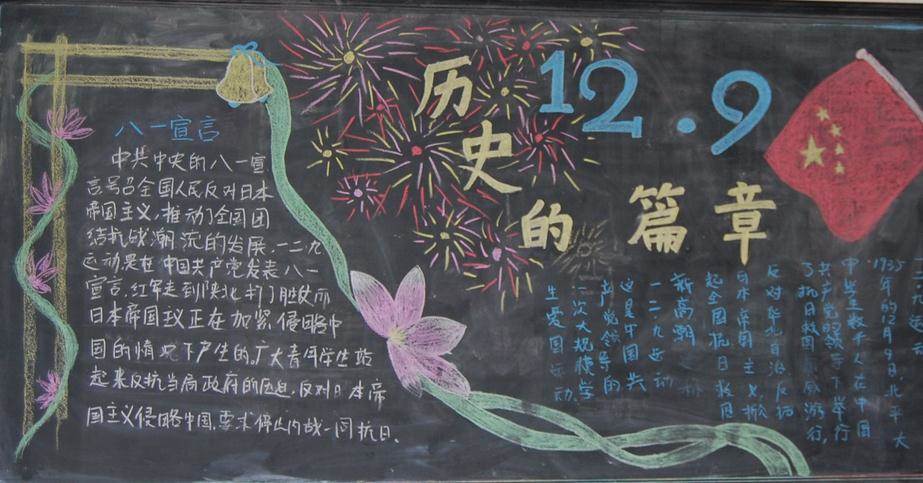 八一宣言
中共中央的八一宣
言号召全国人民反对日本
帝国主义,推动了全国团
结抗战潮沉的发展.一二九
运动是在中国共产党发表八一
宣言,红军走到陕北打了胜仗而
日本帝国主义正在加紧侵略中
国的情况下产生的,广大青年学生站
起来反抗当局政府的压迫,反对日本帝
国主义侵略中国,要求停止内战一同抗日.
历史
的篇章
12.9
1935年的12月9日,北平大
中学生数千人在中国
共产党的领导下举行
了抗日救国示威游行,
反对华北自治,反抗
日本帝国主义,掀
起全国抗日救国
新高潮
一二九运动
这是中国共
产党领导的
一次大规模学
生爱国运动.